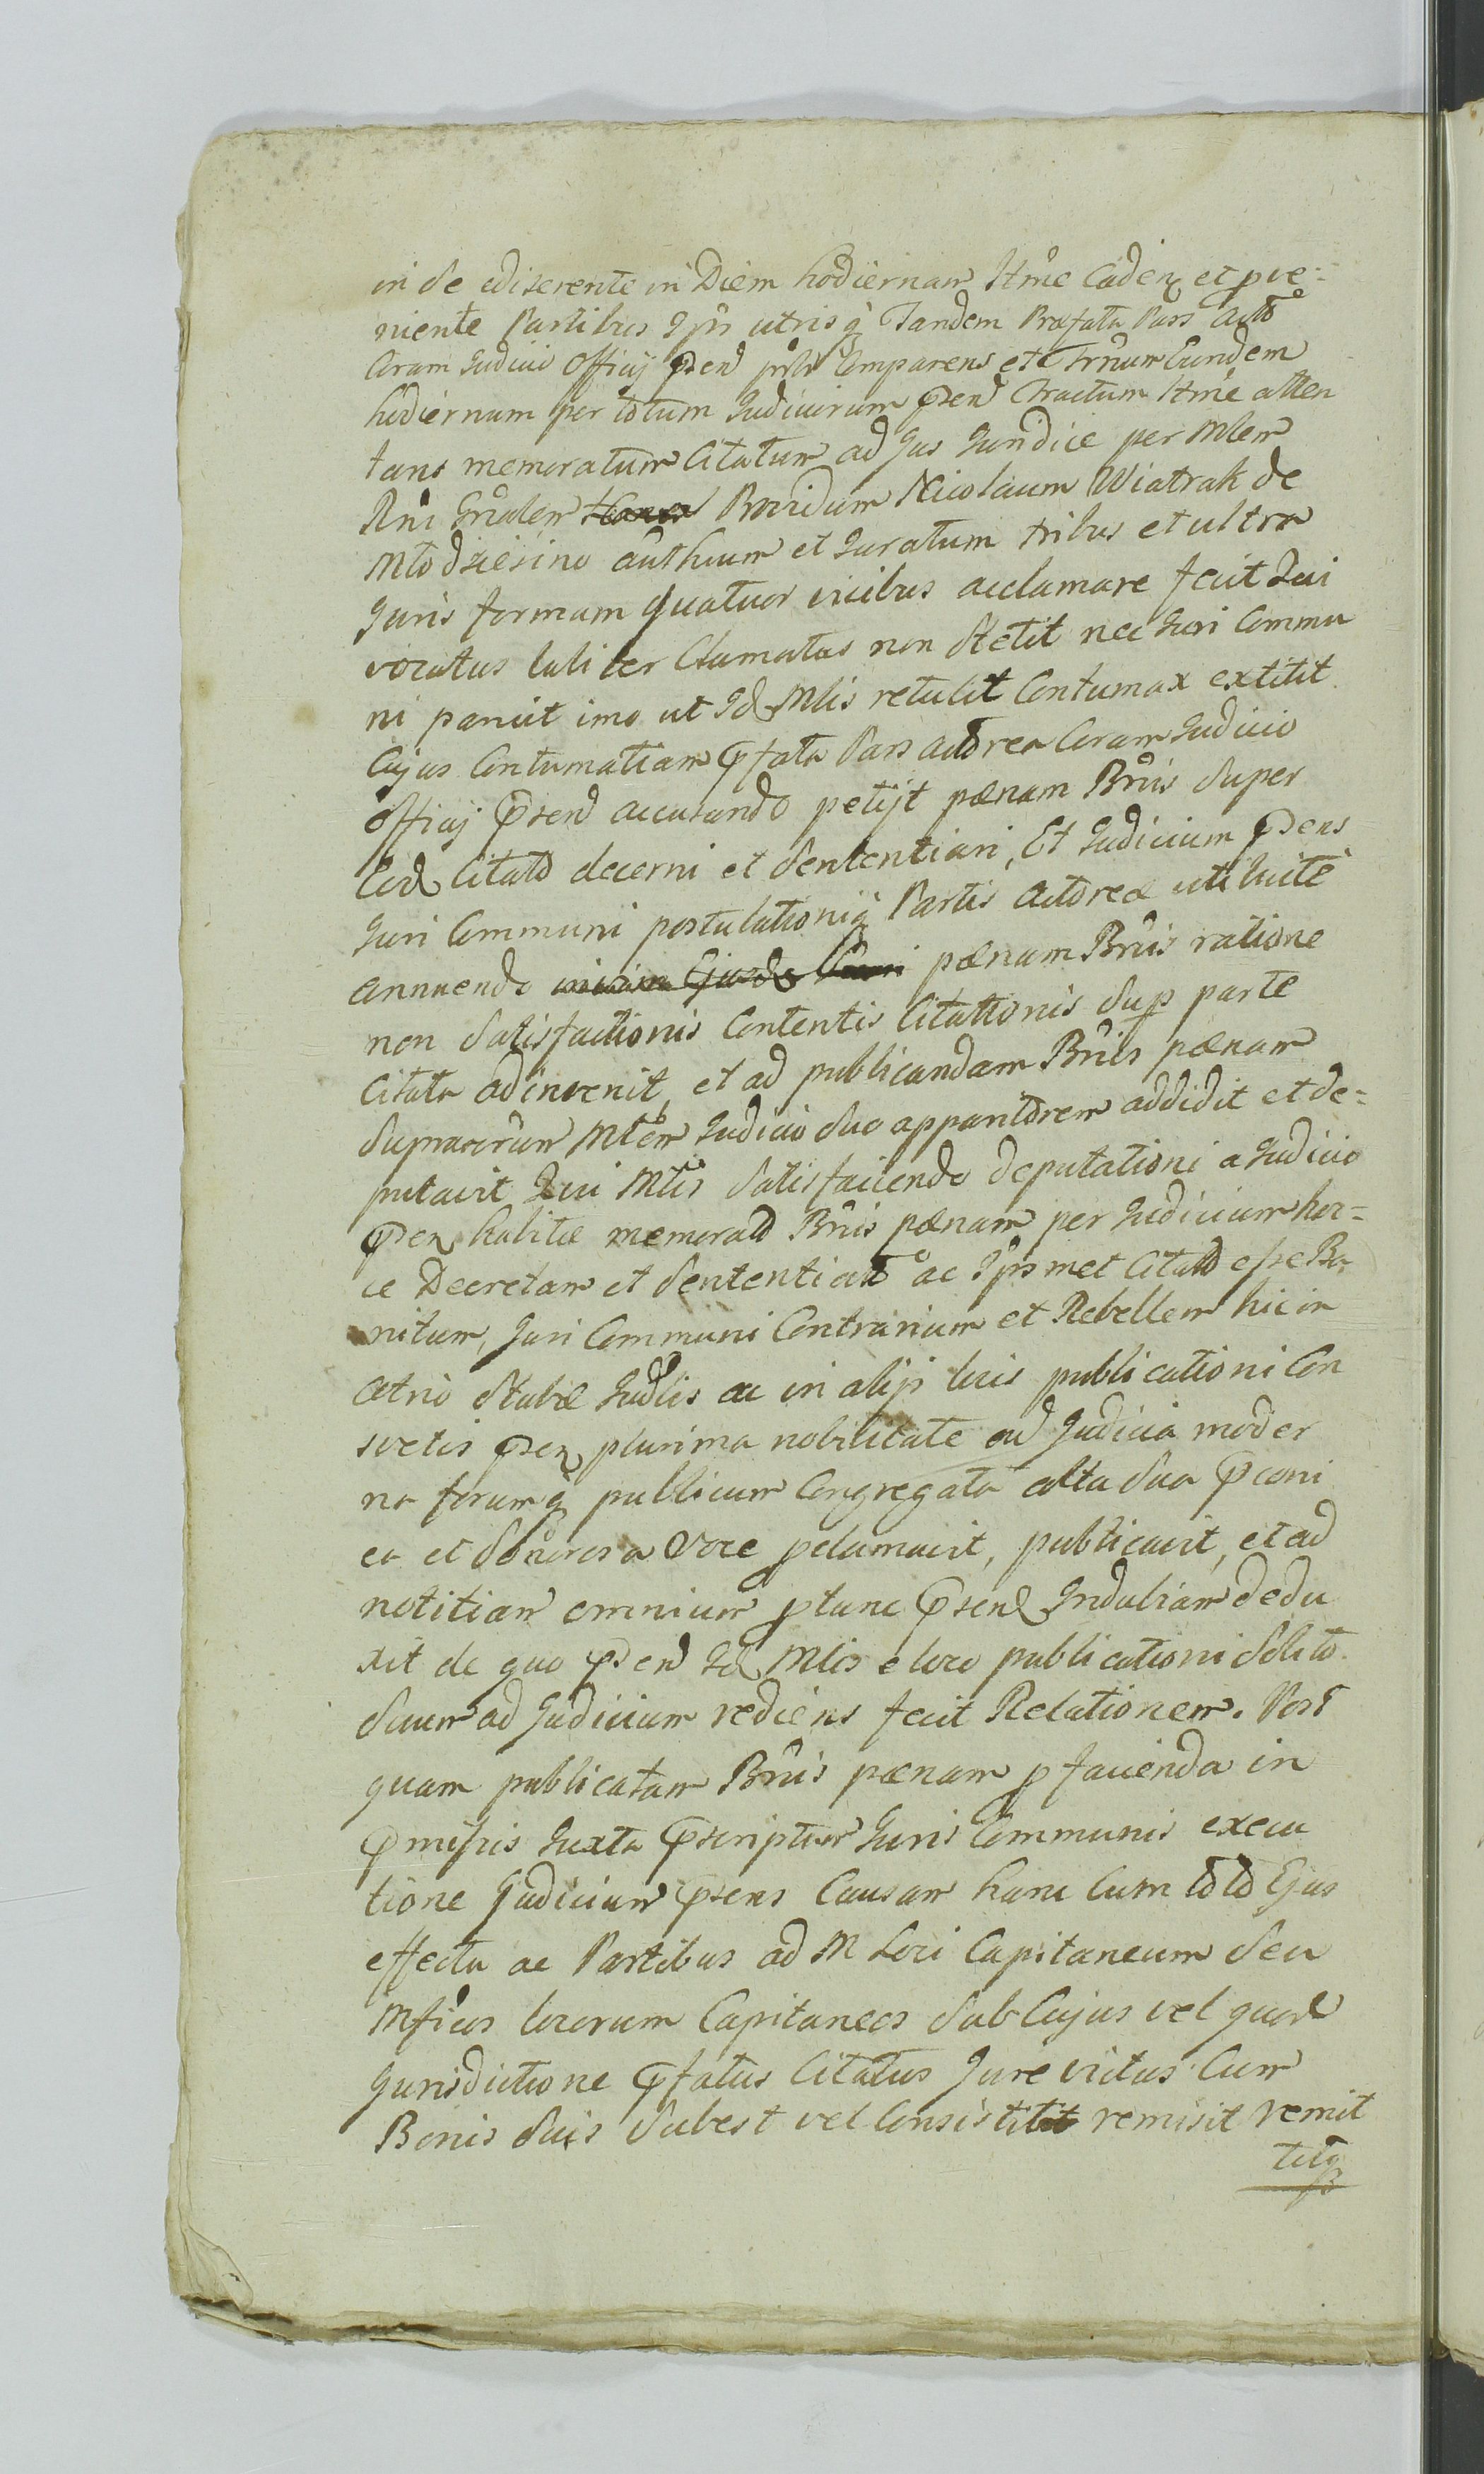 in se ediserente in Diem hodiernam Ttme Caden et pve-
niente Partibus Ips utrisq Tandem Præfata Pars Acto
Coram Judicio Officij psen psotr Comparens et Trnum Eundem
hodiernum per totum Judiciorum psen Tractum Ttme atten
tans memoratum Citatum ad Jus Juridice per Mlem
Rni Gnalem Providum Nicolaum Wiatrak de
Młodziesino authcum et Juratum tribus et ultra
Juris formam quatuor vicibus acclamare fecit Qui
vocatus taliter Clamatus non stetit nec Juri Commu
ni paruit imo ut Id Mlis retulit Contumax extitit.
Cujus Contumatiam pfata Pars Actorea Coram Judicio
Officij psend accusando petijt pænam Bnis super
Eod Citato decerni et sententiari, Et Judicium psens
Juri Communi postulationiq Partis Actoreæ uti licite
annuendo pænam Bnis ratione
non satisfactionis Contentis Citationis sup parte
Citata adinvenit, et ad publicandam Bnis pænam
supracrum Mlem Judicio suo apparitorem addidit et de-
putavit Qui Mlis satisfaciendo deputationi a Judicio
psen habitæ memorato Bnis pænam per Judicium hoc-
ce Decretam et sententiatt ac Ipsmet Citato esse Ba
nitum, Juri Communi Contrarium et Rebellem hic in
atrio stubæ Judlis ac in alijs locis publicationi Con
svetis psen plurima nobilitate ad Judicia moder
na forumq publicum Congregata alta sua pconi
ea et sonorosa voce pclamavit, publicavit, et ad
notitiam omnium ptunc psen Indubiam dedu
xit de quo psen Id Mlis e loco publicationi solito
suum ad Judicium rediens fecit Relationem. Post
quam publicatam Bnis pænam p facienda in
pmissis Juxta pscriptum Juris Communis execu
tione Judicium psens Causam hanc Cum toto Ejus
effectu ac Partibus ad M Loci Capitaneum seu
Mficos locorum Capitaneos sub Cujus vel quor
Jurisdictione pfatus Citatus Jure victus Cum
Bonis suis subest vel Consistit remisit remit
titq